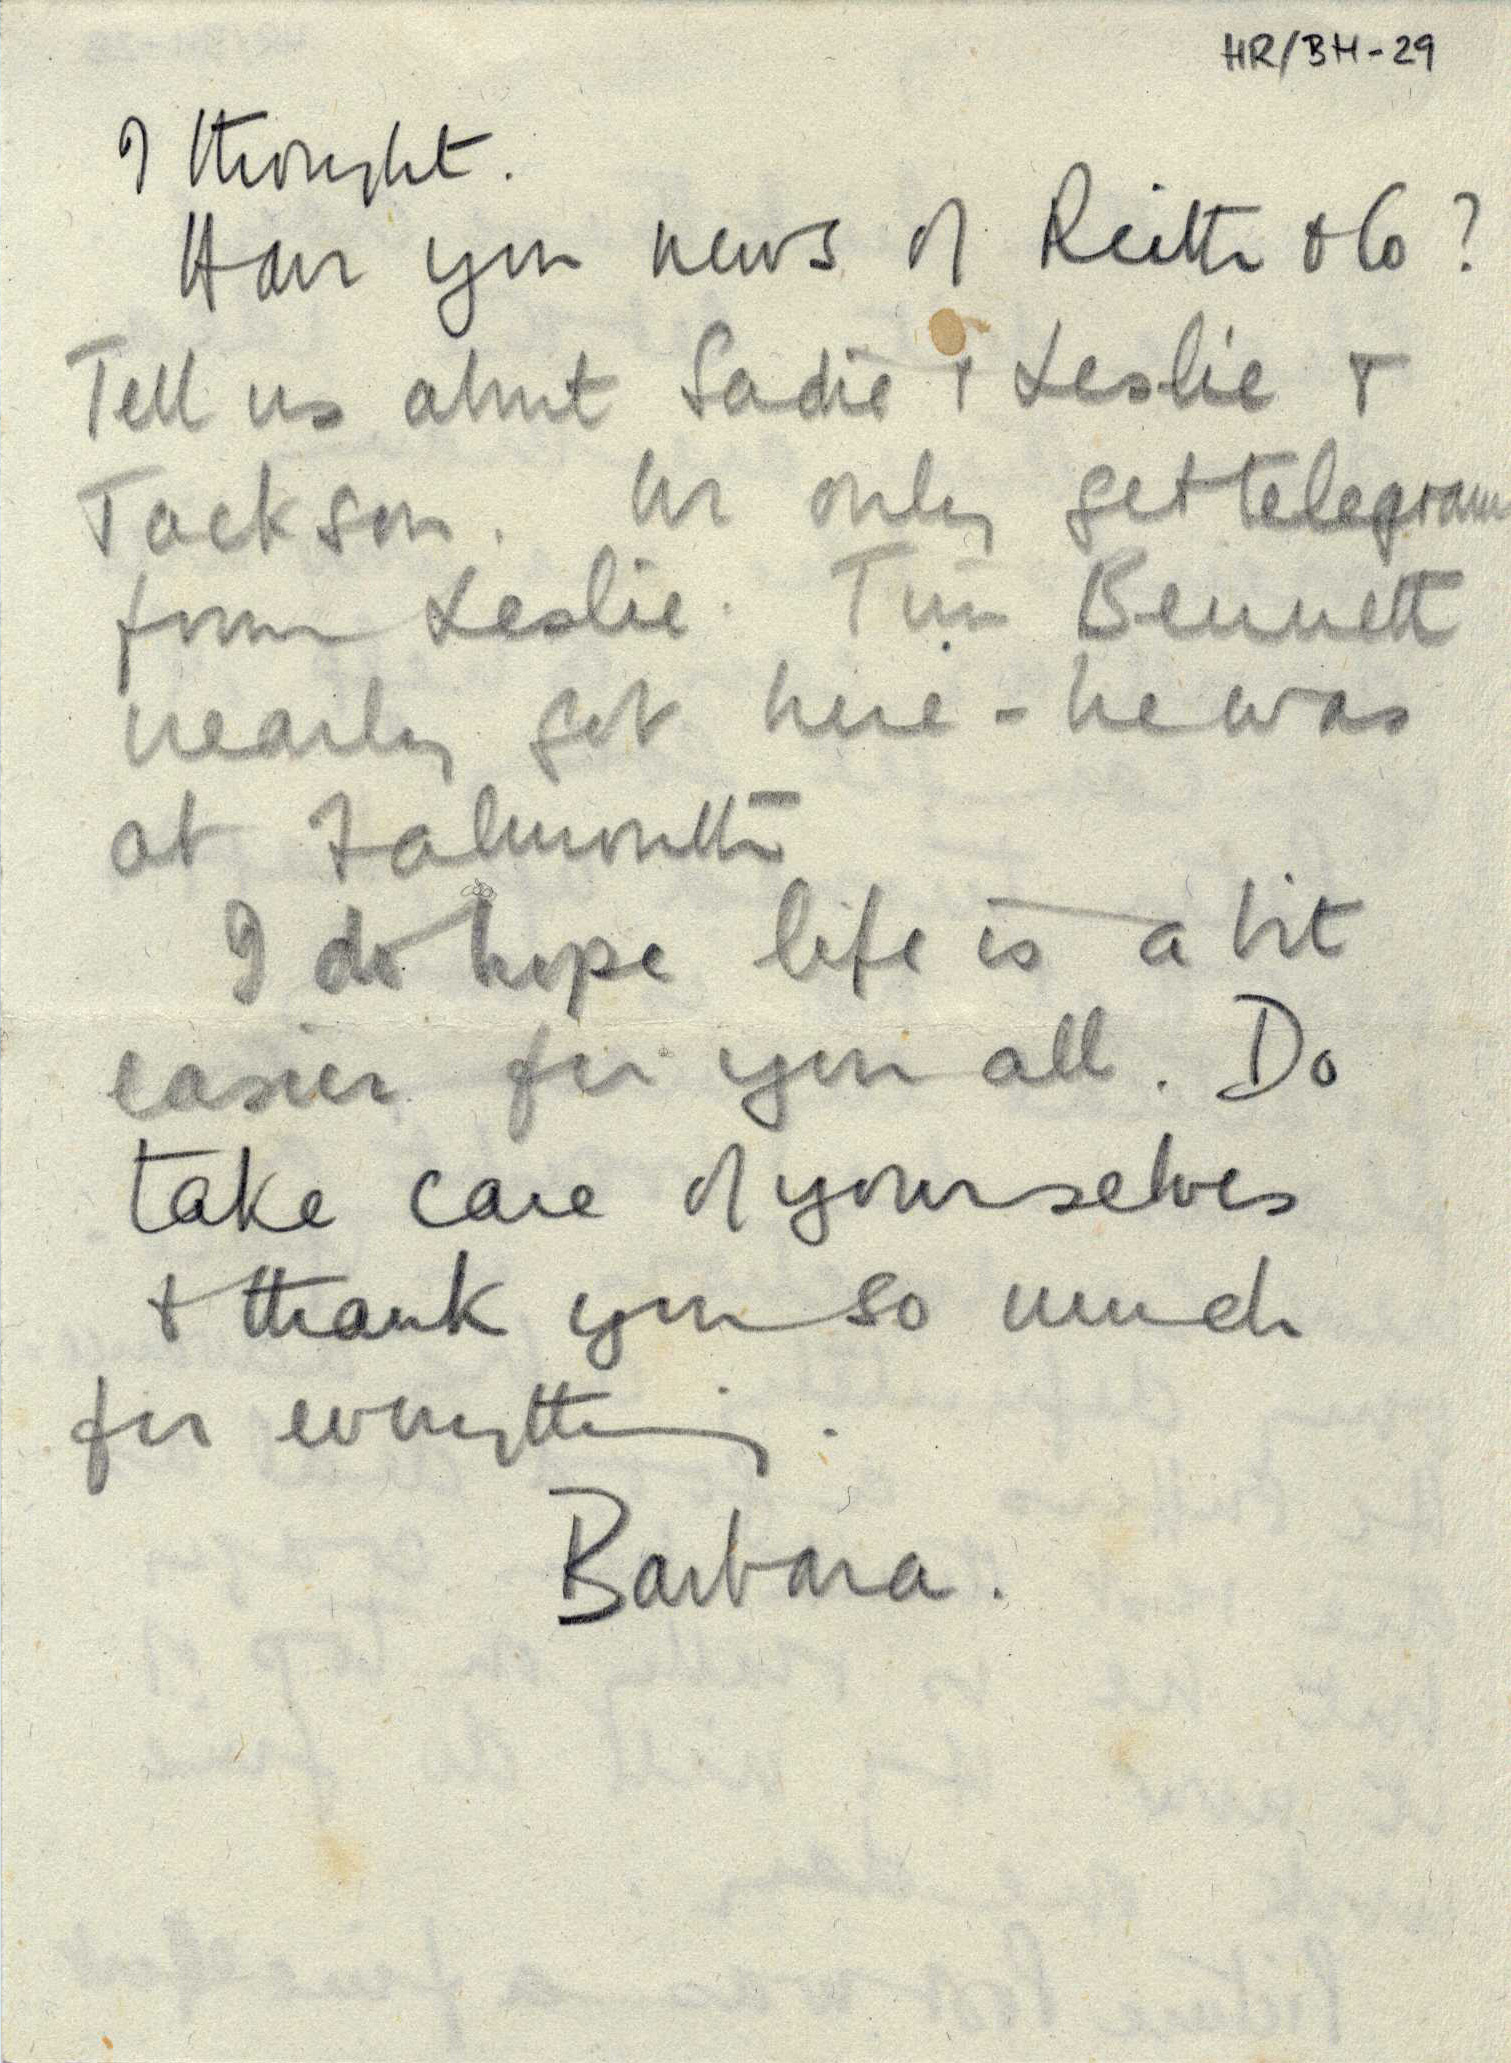 HR/BH-29
I thought.
Have you news of Reith & Co?
Tell us about Sadie & Leslie &
Jackson. We only get telegrams
from Leslie. Tim Bennett
nearly got here - he was
at Falmouth
I do hope life is a bit
easier for you all. Do
take care of yourselves
& thank you so much
for everything.
Barbara.